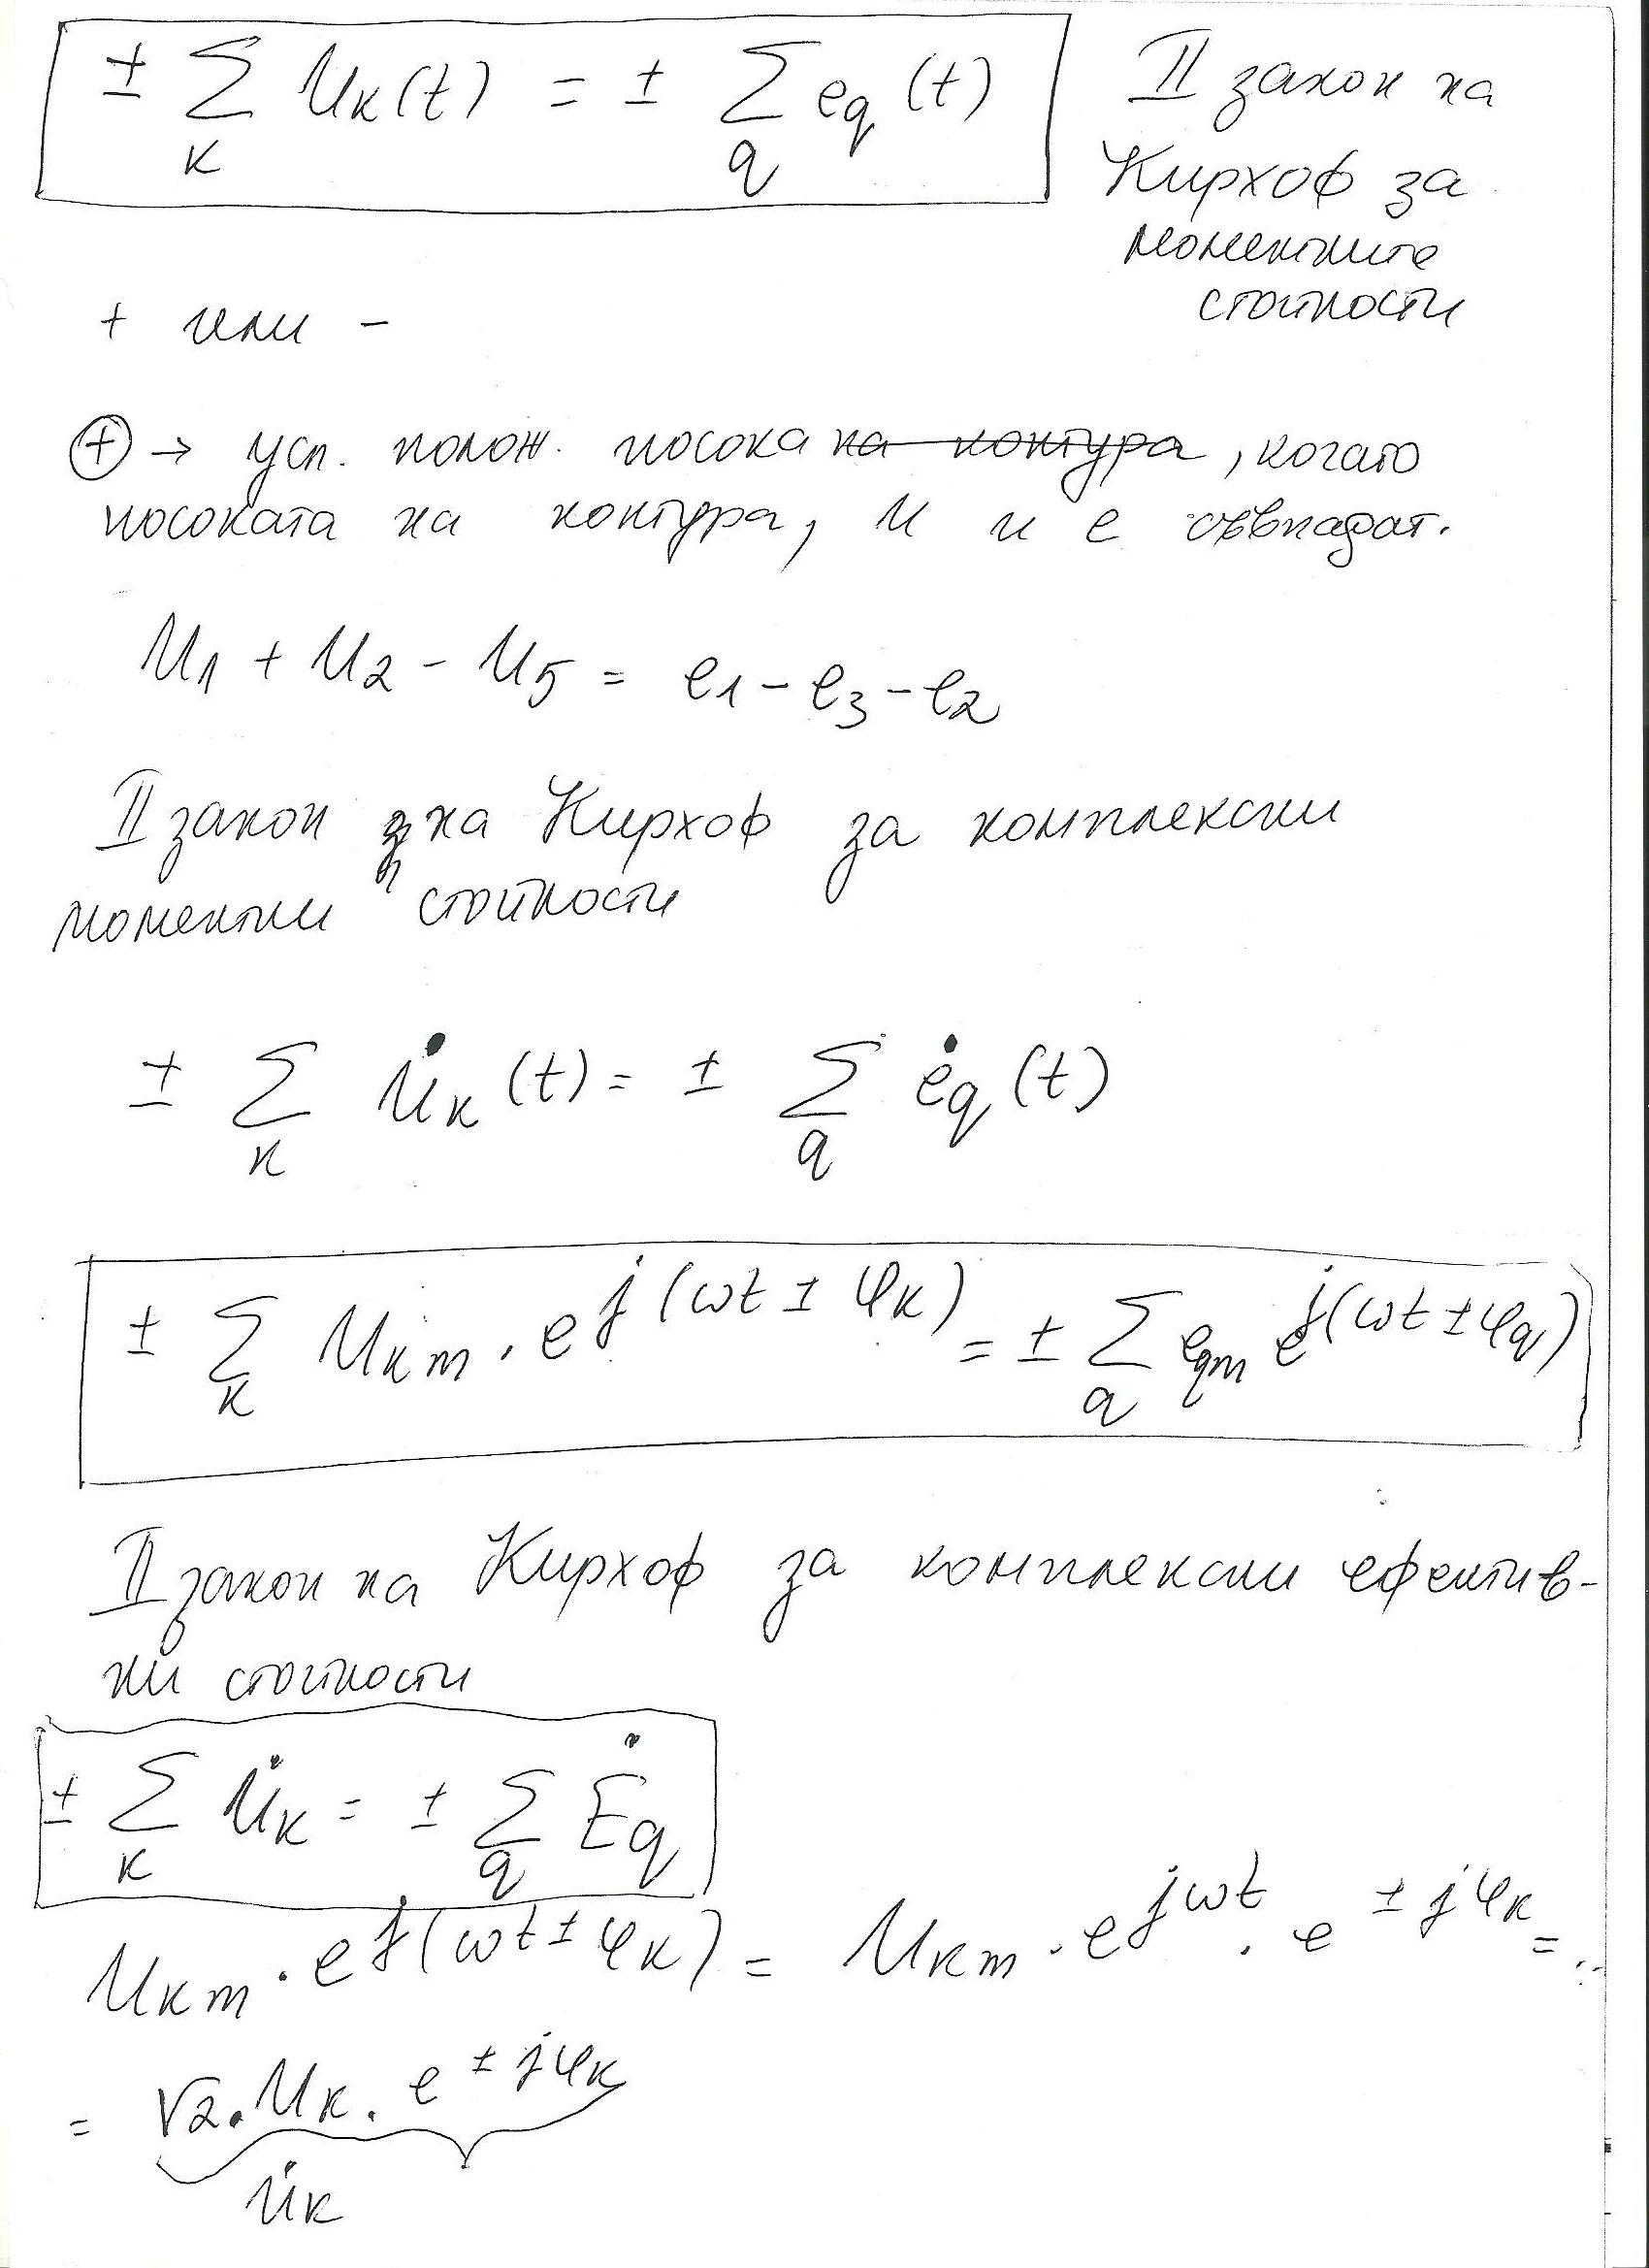 ± Σ_k u_k(t) = ± Σ_q e_q(t)
II закон на
Кирхоф за
моментните
стойности
+ или -
⊕ → усл. полож. посока на контура, когато
посоката на контура, u и e съвпадат.
u_1 + u_2 - u_5 = e_1 - e_3 - e_2
II закон на Кирхоф за комплексни
моментни стойности
± Σ_k u̇_k(t) = ± Σ_q ė_q(t)
± Σ_k U_km . e^j(ωt ± φ_k) = ± Σ_q e_qm e^j(ωt ± φ_q)
II закон на Кирхоф за комплексни ефектив-
ни стойности
± Σ_k U̇_k = ± Σ_q Ė_q
U_km . e^j(ωt ± φ_k) = U_km . e^jωt . e^±jφ_k =
= √2 . U_k . e^±jφ_k
U̇_k